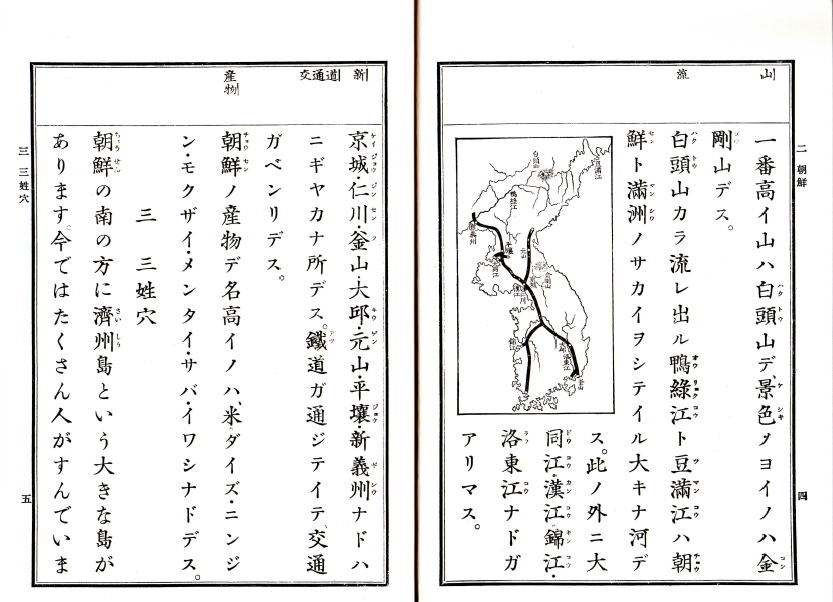 二 朝鮮
山
流
一番高イ山ハ白頭山デ、景色ノヨイノハ金
剛山デス。
白頭山カラ流レ出ル鴨綠江ト豆滿江ハ朝
鮮ト滿洲ノサカイヲシテイル大キナ河デ
ス。此ノ外ニ大
同江・漢江・錦江・
洛東江ナドガ
アリマス。
白頭山
豆滿江
鴨綠江
新義州
平壤
元山
錦江
洛東江
釜山
四
新
交通道
産物
京城・仁川・釜山・大邱・元山・平壤・新義州ナドハ
ニギヤカナ所デス。鐵道ガ通ジテイテ、交通
ガベンリデス。
朝鮮ノ産物デ名高イノハ、米・ダイズ・ニンジ
ン・モクザイ・メンタイ・サバ・イワシナドデス。
三 三姓穴
朝鮮の南の方に濟州島という大きな島が
あります。今ではたくさん人がすんでいま
三 三姓穴
五